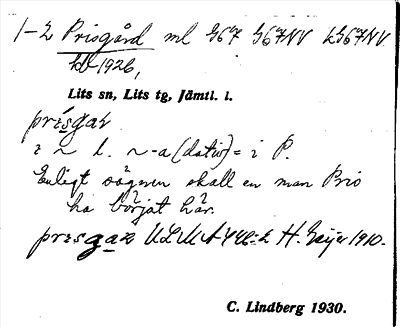 1-2 Prisgård ml 967 967NV 1967NV.
kb-1926,
Lits sn, Lits tg, Jämtl. l.
prı́sgaɍ
i ~ l. ~-a (dativ) = i P.
Enligt sägnen skall en man Pris
ha börjat här.
prɩsgaɍ ULMA H. Geijer 1910.
C. Lindberg 1930.